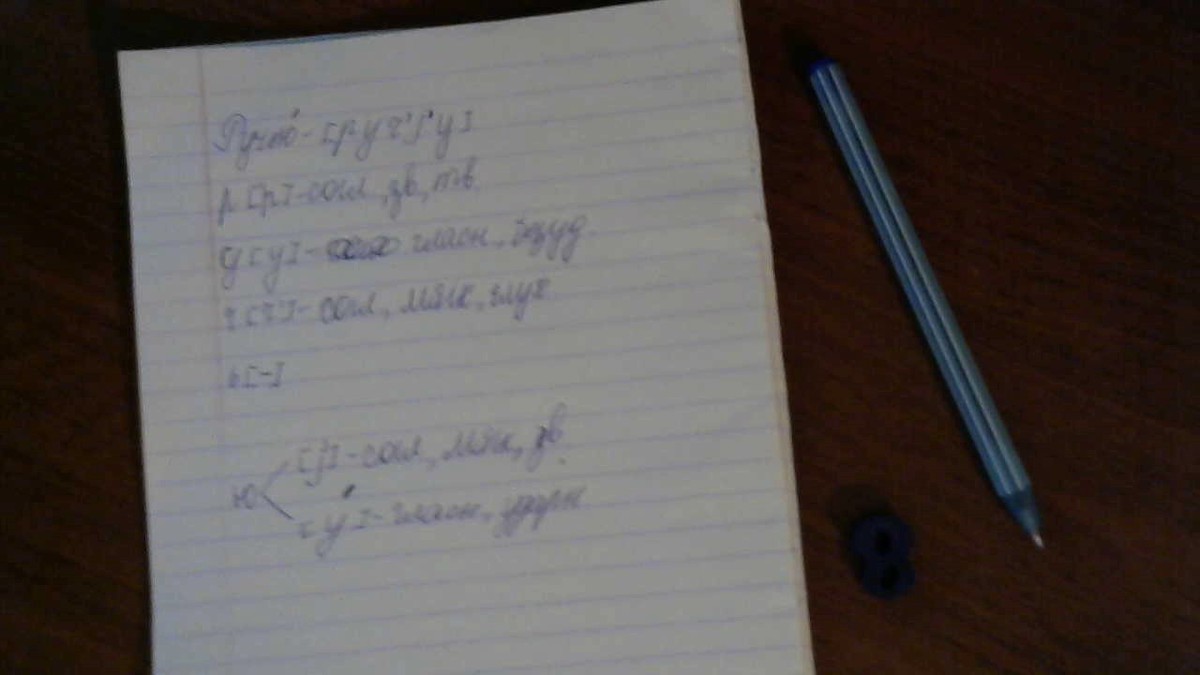 Ручью́ - [руч'j'у]
р [р] - согл, зв, тв.
у [у] - гласн, безуд.
ч [ч] - согл, мягк, глух
ь [-]
ю [j] - согл, мягк, зв.
[у́] - гласн, ударн